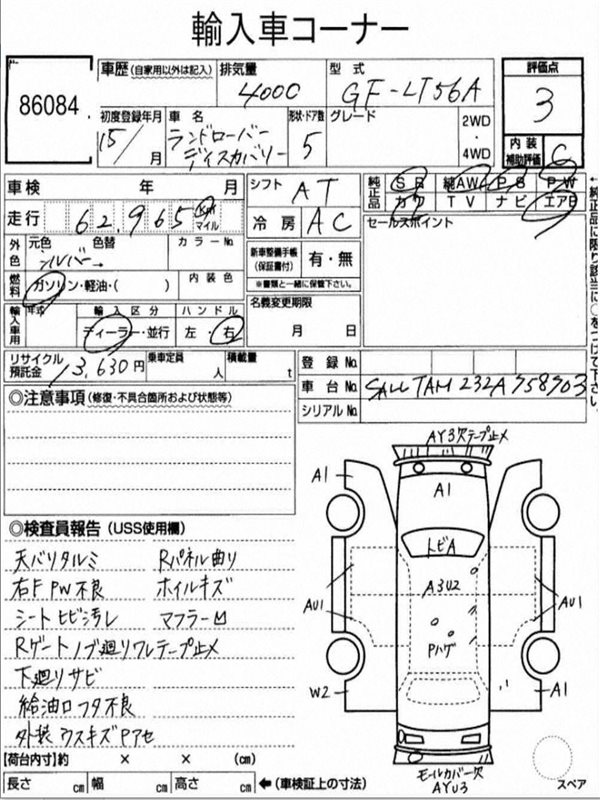 輸入車コーナー
86084
車歴 (自家用以外は記入) 排気量 4000 型式 GF-LT56A
評価点 3
初度登録年月 15/ 月 車名 ランドローバー ディスカバリー 形状・ドア数 5 グレード 2WD・4WD
内装補助評価 C
車検 年 月 シフト AT
純正品 SR 純AW PS PW
カワ TV ナビ エアB
走行 62,965 km マイル 冷房 AC
セールスポイント
外色 元色 色替 カラーNo
シルバー→
新車整備手帳 (保証書付) 有・無
※書類と一緒に保管下さい。
燃料 ガソリン・軽油・( ) 内装色
輸入車用 年式 輸入区分 ハンドル
ディーラー・並行 左・右
名義変更期限 月 日
リサイクル預託金 13,630円 乗車定員 人 積載量 t
登録No
車台No SALLTAM232A758903
シリアルNo
◎注意事項 (修復・不具合箇所および状態等)
◎検査員報告 (USS使用欄)
天バリタルミ Rパネル曲り
右F PW不良 ホイルキズ
シートヒビ汚レ マフラー凹
Rゲートノブ廻リワレテープ止メ
下廻リサビ
給油口フタ不良
外装 ウスキズPアセ
[荷台内寸] 約 × × (cm)
長さ cm 幅 cm 高さ cm ←(車検証上の寸法)
AY3欠テープ止メ
A1
A1
トビA
A3U2
AU1
AU1
Pハゲ
W2
A1
モールカバー欠
AYU3
スペア
←純正品に限り該当に○をつけて下さい。